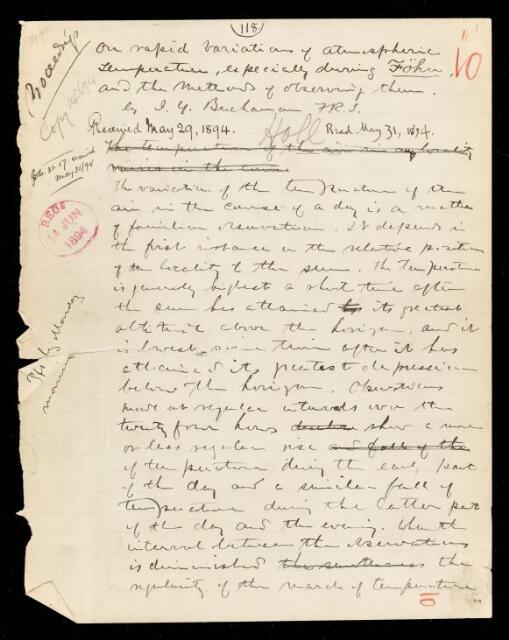 118
On rapid variations of atmospheric
Temperature, especially during Föhn,
and the Methods of observing them.
by J. Y. Buchanan F.R.S.
Received May 29, 1894. Read May 31, 1894.
Proceedings
Copy
May 31/94
RECd
14 JUN
1894
10
The temperature of the air in any locality
varies in the course
The variation of the temperature of the
air in the course of a day is a matter
of familiar observation. It depends in
the first instance on the relative position
of the locality & the sun. The temperature
is generally highest a short time after
the sun has attained its greatest
altitude above the horizon, and it
is lowest some time after it has
attained its greatest depression
below the horizon. Observations
made at regular intervals over the
twenty four hours show a more
or less regular rise and fall of the
of temperature during the early part
of the day and a similar fall of
temperature during the latter part
of the day and the evening. When the
interval between the observations
is diminished the the
regularity of the march of temperature
morning
10